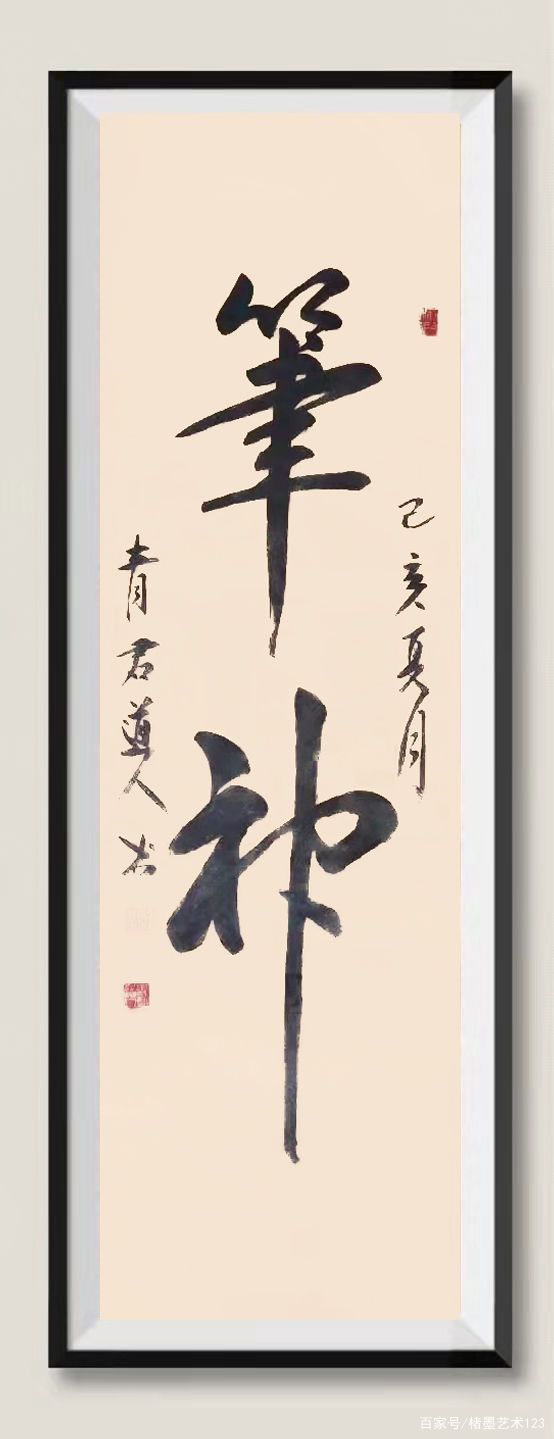 筆神
己亥夏月
青君道人书
百家号/楮墨艺术123